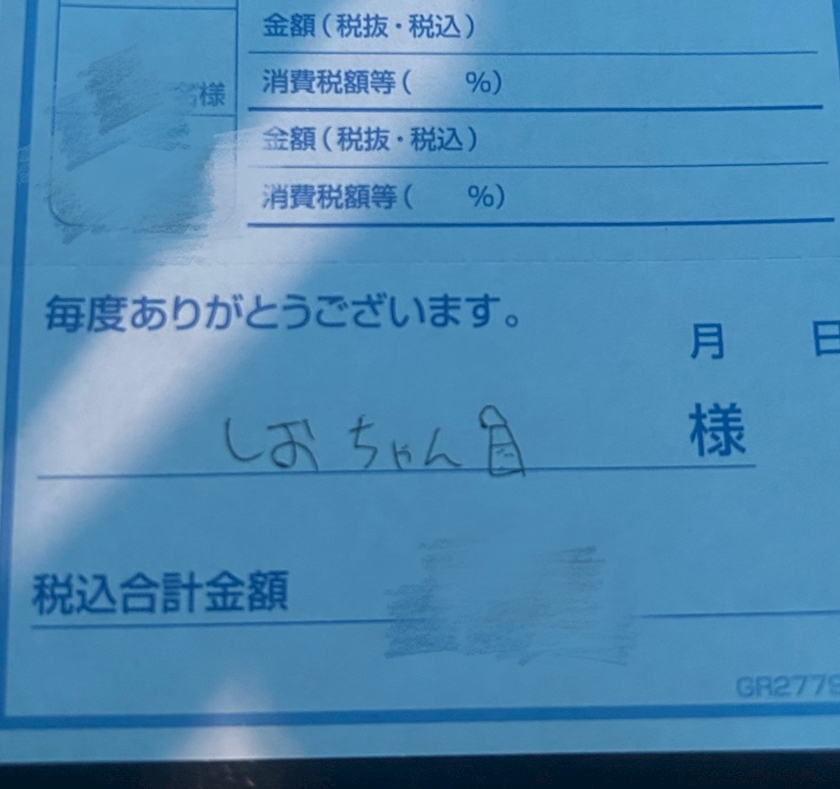 金額(税抜・税込)
消費税額等(　　%)
様
金額(税抜・税込)
消費税額等(　　%)
毎度ありがとうございます。
月　　日
しおちゃん 様
税込合計金額
GR2779